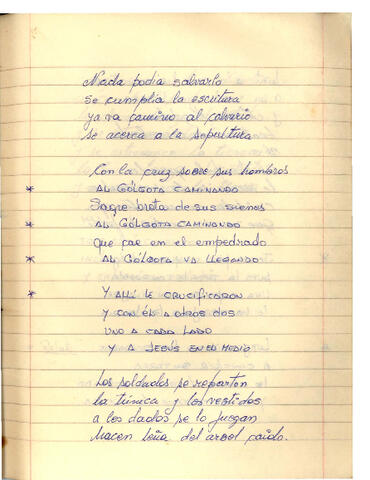 Nada podia salvarlo
se cumplia la escritura
ya va camino al calvario
se acerca a la sepultura
Con la cruz sobre sus hombros
* AL GÓLGOTA CAMINANDO
Sagre brota de sus sienes
* AL GÓLGOTA CAMINANDO
Que cae en el empedrado
* AL GÓLGOTA VA LLEGANDO
* Y ALLÍ LE CRUCIFICARON
Y CON ÉL A OTROS DOS
UNO A CADA LADO
Y A JESÚS EN EL MEDIO
Los soldados se reparten
la túnica y los vestidos
a los dados se lo juegan
hacen leña del arbol caido.